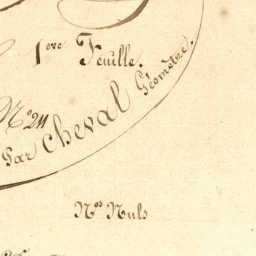 1ere Feuille.
No 211
Par Cheval Géomètre.
Nos Nuls